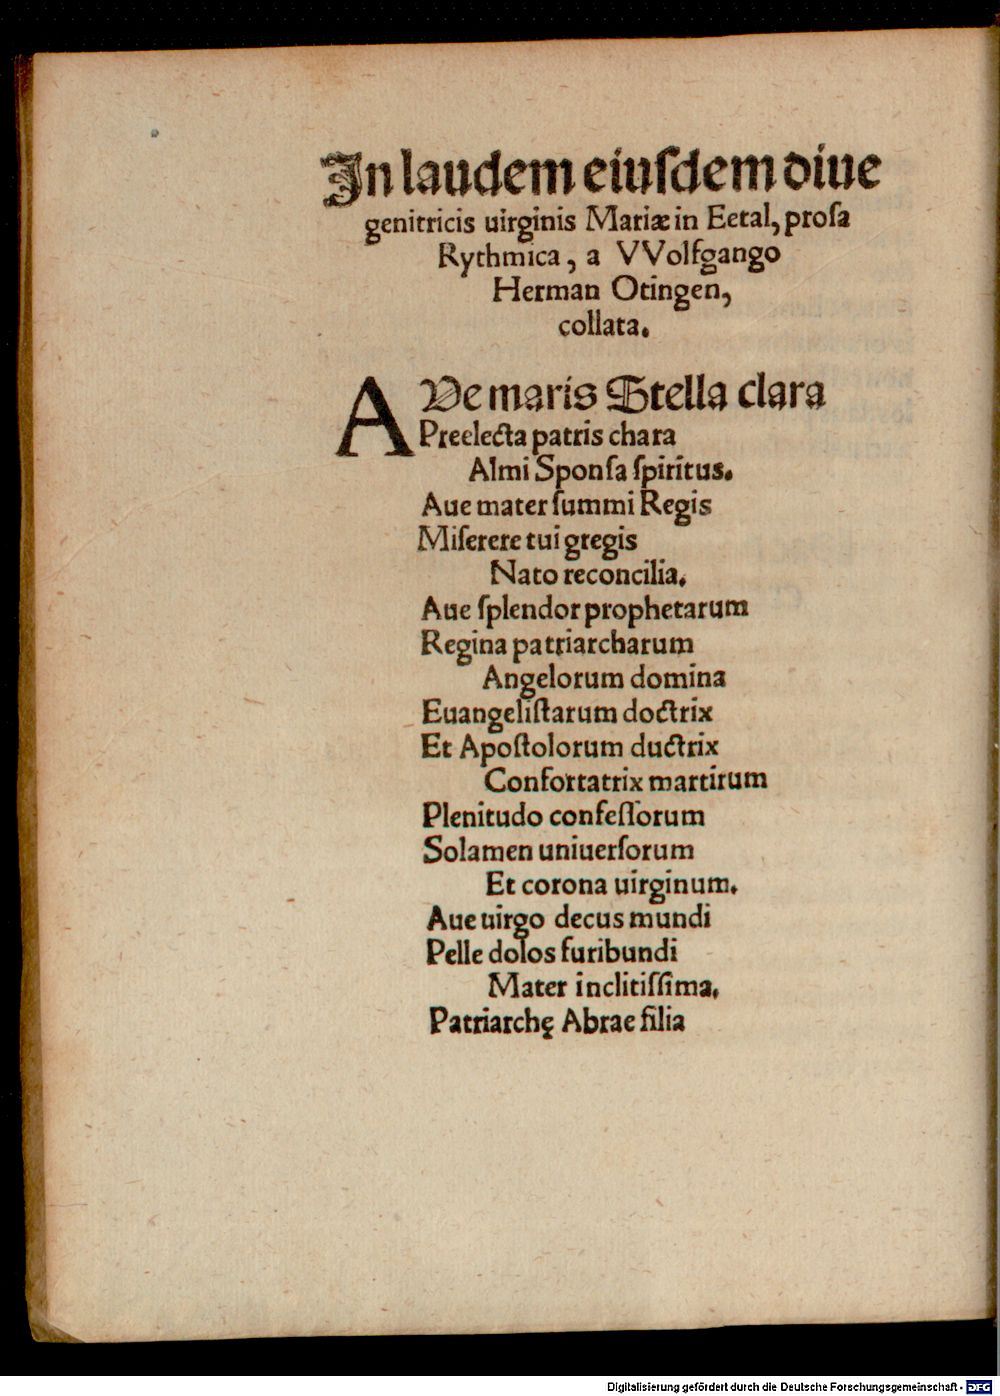 In laudem eiuſdem diue
genitricis uirginis Mariæ in Eetal, proſa
Rythmica, a VVolfgango
Herman Otingen,
collata.
AVe maris Stella clara
Preelecta patris chara
Almi Sponſa ſpiritus.
Aue mater ſummi Regis
Miſerere tui gregis
Nato reconcilia.
Aue ſplendor prophetarum
Regina patriarcharum
Angelorum domina
Euangeliſtarum doctrix
Et Apoſtolorum ductrix
Confortatrix martirum
Plenitudo confeſſorum
Solamen uniuerſorum
Et corona uirginum.
Aue uirgo decus mundi
Pelle dolos furibundi
Mater inclitiſſima.
Patriarchę Abrae filia
Digitalisierung gefördert durch die Deutsche Forschungsgemeinschaft - DFG